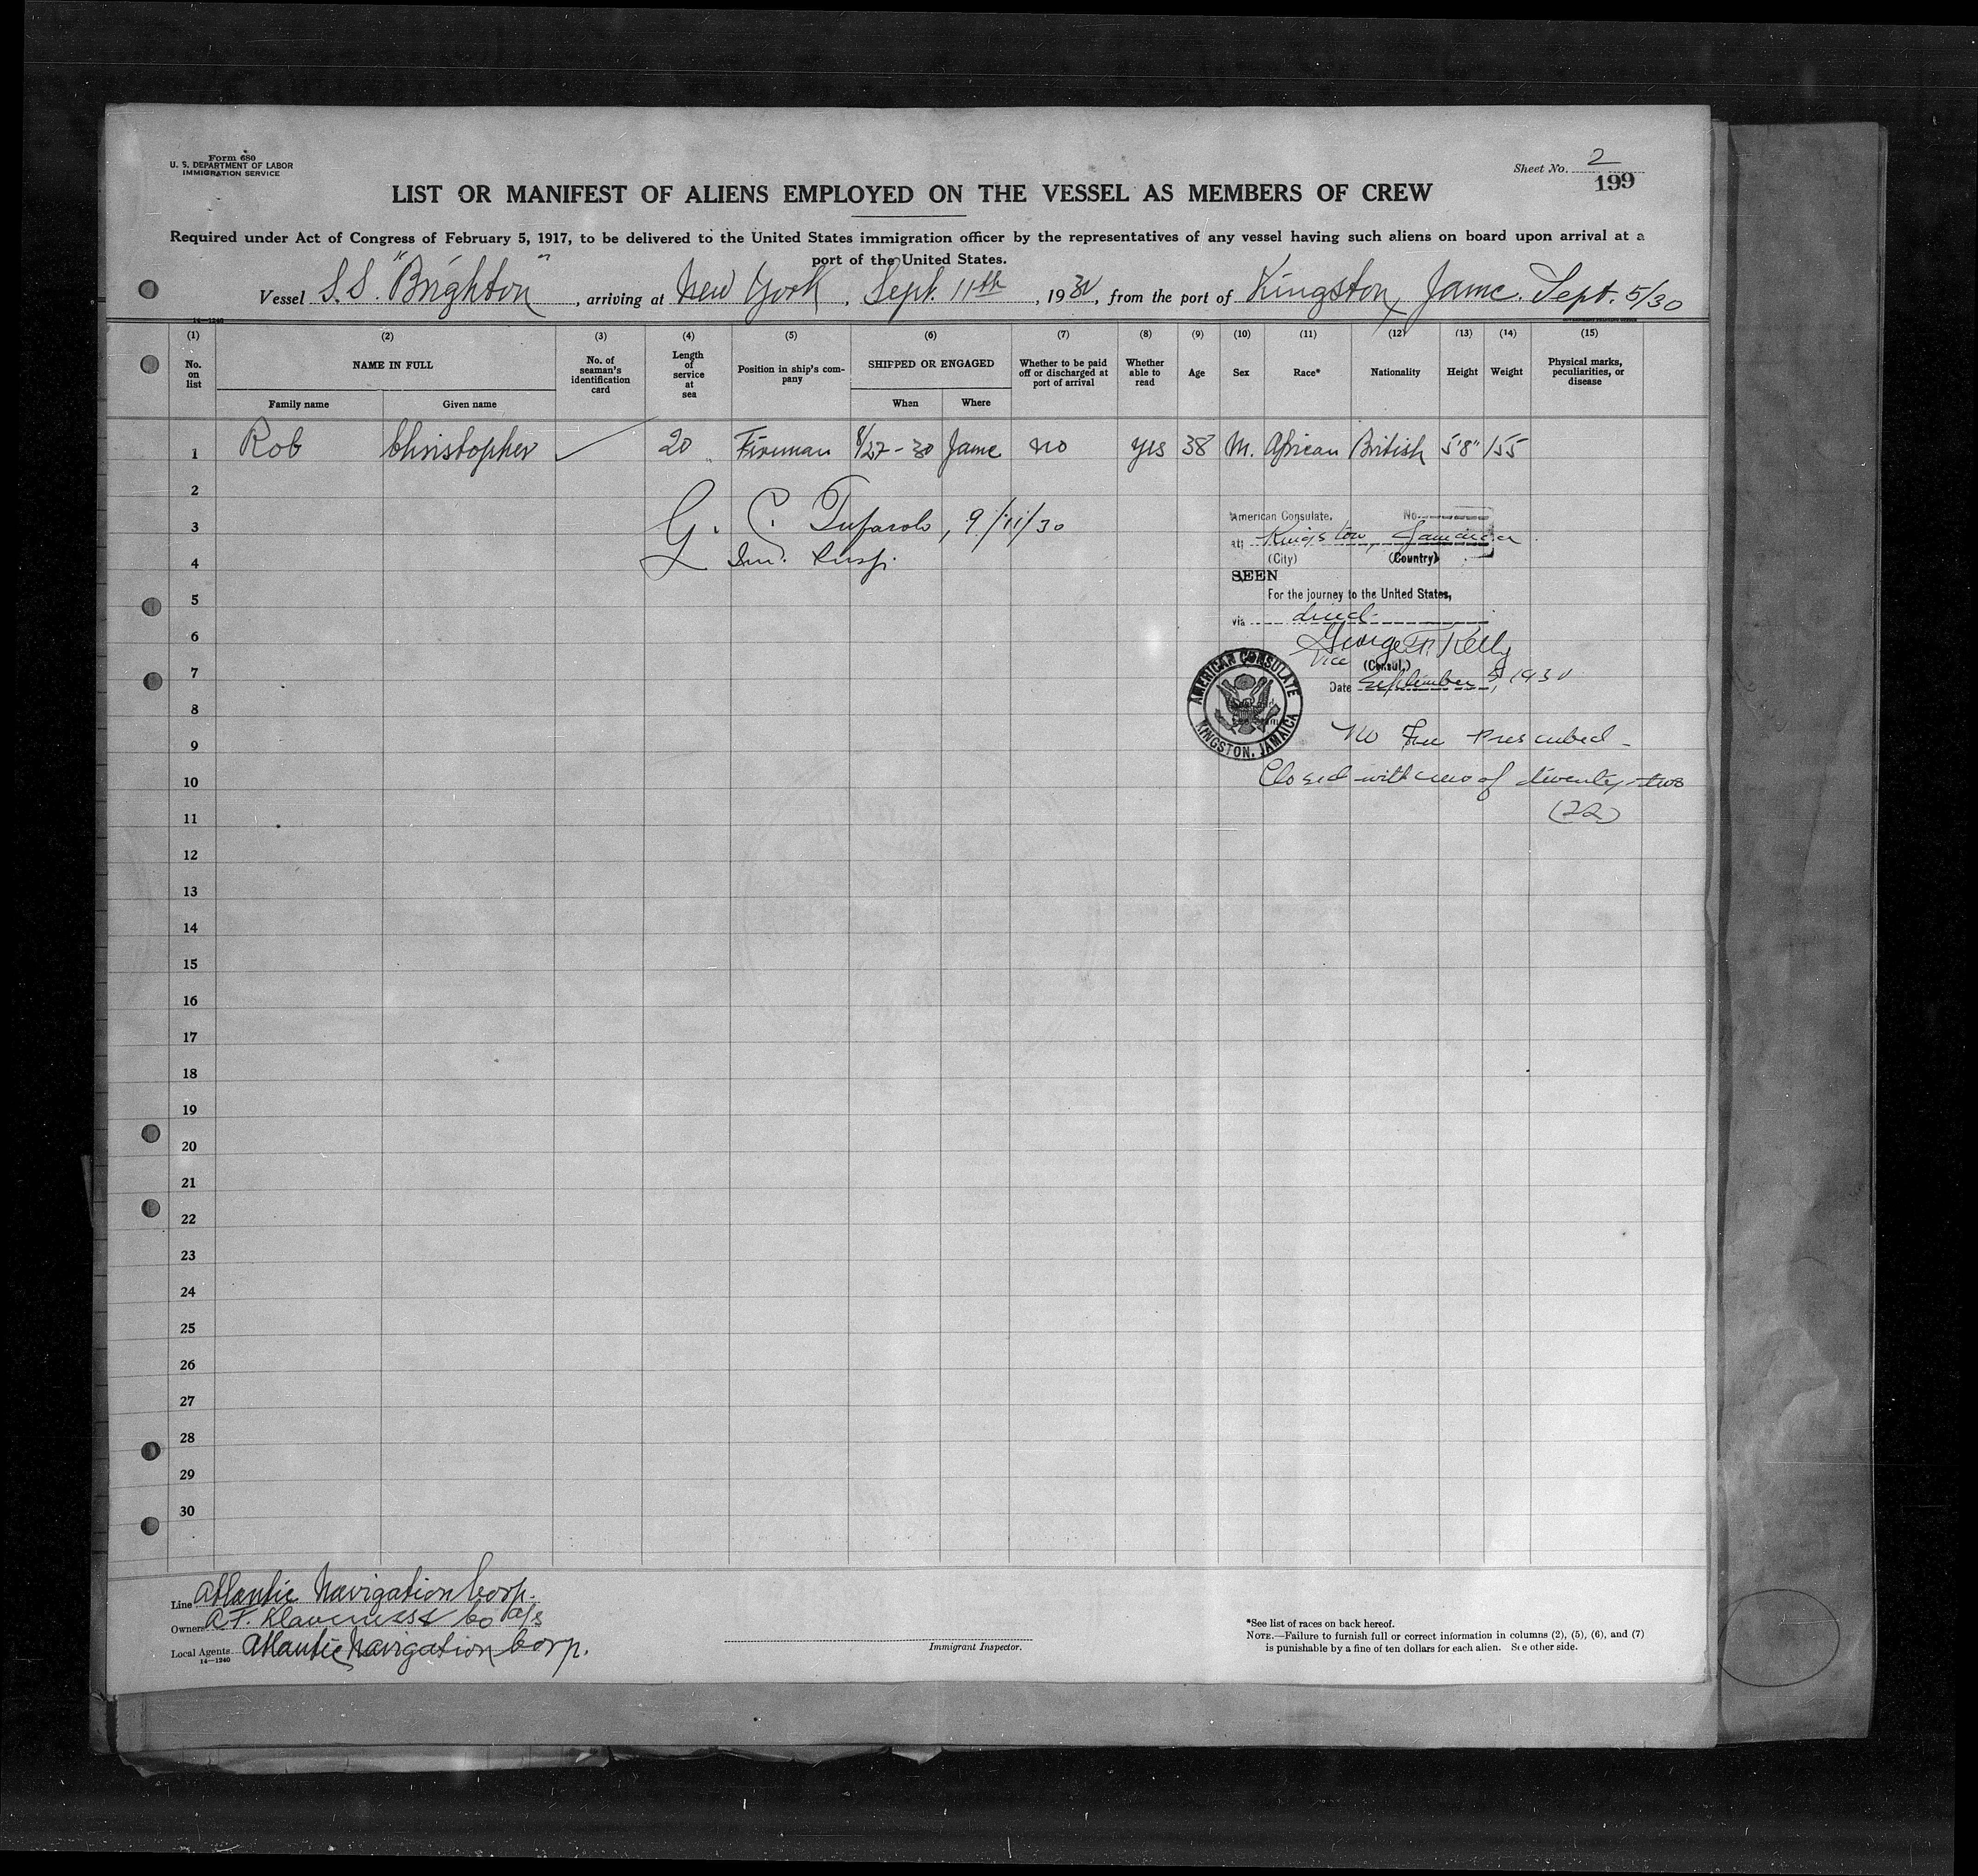 Form 680
U. S. DEPARTMENT OF LABOR
IMMIGRATION SERVICE
Sheet No. 2
199
LIST OR MANIFEST OF ALIENS EMPLOYED ON THE VESSEL AS MEMBERS OF CREW
Required under Act of Congress of February 5, 1917, to be delivered to the United States immigration officer by the representatives of any vessel having such aliens on board upon arrival at a
port of the United States.
Vessel S.S. "Brighton", arriving at New York, Sept. 11th, 1930, from the port of Kingston, Jamc. Sept. 5/30
14—1240
(1) (2) (3) (4) (5) (6) (7) (8) (9) (10) (11) (12) (13) (14) (15)
No. on list
NAME IN FULL
Family name
Given name
No. of seaman's identification card
Length of service at sea
Position in ship's company
SHIPPED OR ENGAGED
When
Where
Whether to be paid off or discharged at port of arrival
Whether able to read
Age
Sex
Race*
Nationality
Height
Weight
Physical marks, peculiarities, or disease
1 Rob Christopher 20 Fireman 8/27-30 Jamc no yes 38 M. African British 5'8" 155
2
3 G. C. , 9/11/30
4 Insp.
American Consulate. No.
at Kingston, Jamaica
(City) (Country)
SEEN
For the journey to the United States,
via direct
George F. Kelly
Vice (Consul.)
Date September 5, 1930
AMERICAN CONSULATE
KINGSTON, JAMAICA
No Fee Prescribed -
Closed with crew of twenty-two
(22)
5
6
7
8
9
10
11
12
13
14
15
16
17
18
19
20
21
22
23
24
25
26
27
28
29
30
Line Atlantic Navigation Corp.
Owners A.F. Klaveness & Co A/S
Local Agents Atlantic Navigation Corp.
14—1240
Immigrant Inspector.
*See list of races on back hereof.
NOTE.—Failure to furnish full or correct information in columns (2), (5), (6), and (7)
is punishable by a fine of ten dollars for each alien. See other side.